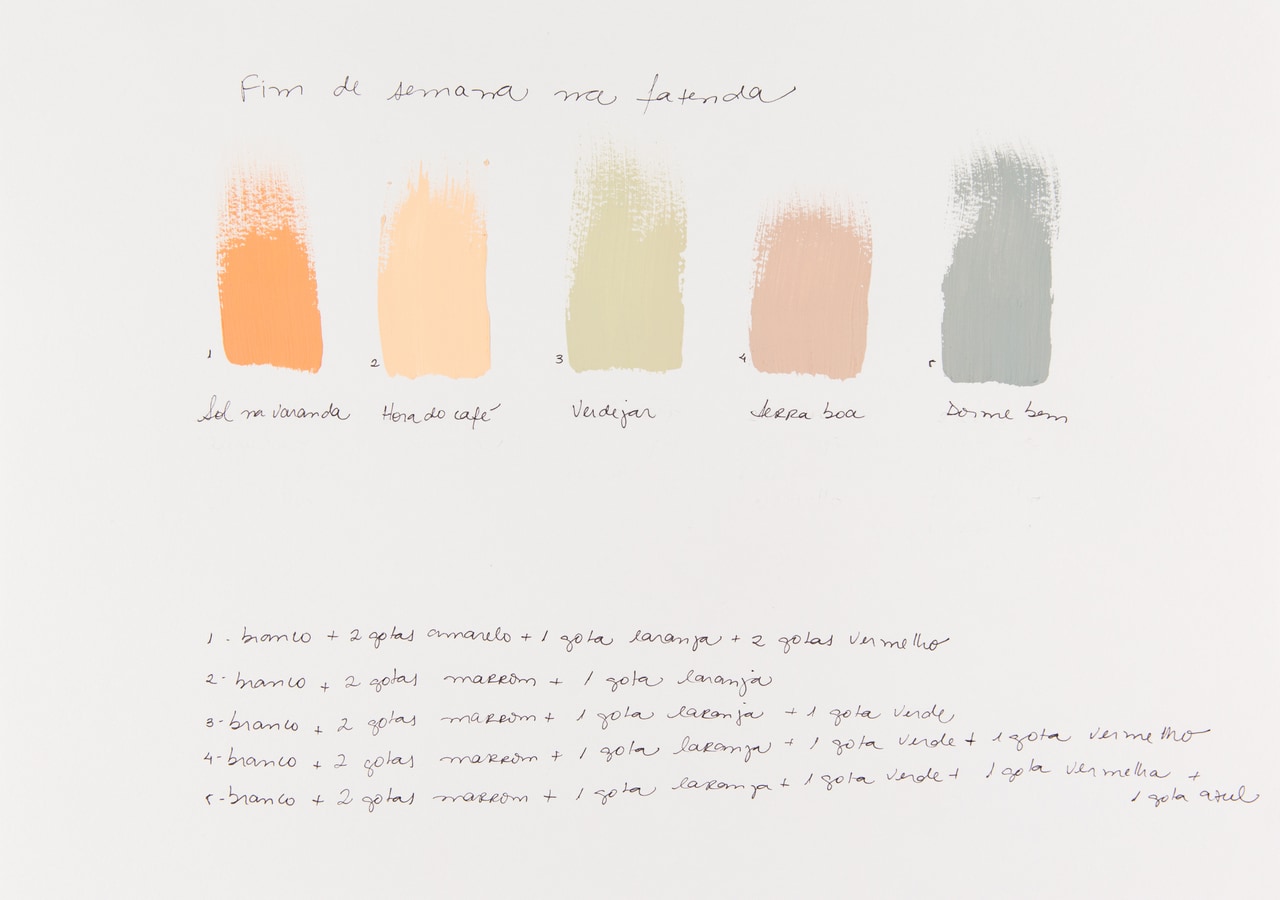 Fim de semana na fazenda
1 2 3 4 5
Sol na varanda Hora do café Verdejar Serra boa Dorme bem
1 - branco + 2 gotas amarelo + 1 gota laranja + 2 gotas vermelho
2 - branco + 2 gotas marrom + 1 gota laranja
3 - branco + 2 gotas marrom + 1 gota laranja + 1 gota verde
4 - branco + 2 gotas marrom + 1 gota laranja + 1 gota verde + 1 gota vermelho
5 - branco + 2 gotas marrom + 1 gota laranja + 1 gota verde + 1 gota vermelha +
1 gota azul